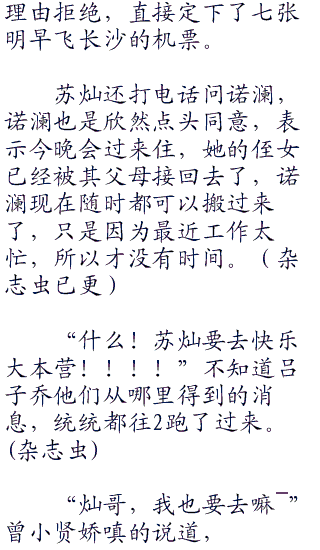 理由拒绝，直接定下了七张
明早飞长沙的机票。
苏灿还打电话问诺澜，
诺澜也是欣然点头同意，表
示今晚会过来住，她的侄女
已经被其父母接回去了，诺
澜现在随时都可以搬过来
了，只是因为最近工作太
忙，所以才没有时间。（杂
志虫已更）
“什么！苏灿要去快乐
大本营！！！！”不知道吕
子乔他们从哪里得到的消
息，统统都往2跑了过来。
(杂志虫)
“灿哥，我也要去嘛¯”
曾小贤娇嗔的说道，